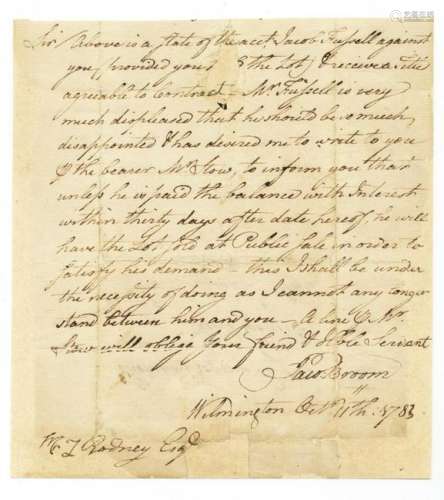 Sir Above is a state of the acct. Jacob Fussell against
you, provided you & the Lot, & receive a title
agreeable to contract - Mr. Fussell is very
much displeased that he should be so much
disappointed & has desired me to write to you
the bearer Mr. Stow, to inform you that
unless he is paid the balance with Interest
within thirty days after date hereof, he will
have the Lot sold at Public Sale in order to
satisfy his demand - this I shall be under
the necessity of doing as I cannot any longer
stand between him and you - A line Mr.
Stow will oblige your friend & Hble Servant
Jaco Broom
Wilmington Octr. 11th. 1783
Mr. T Rodney Esqr.